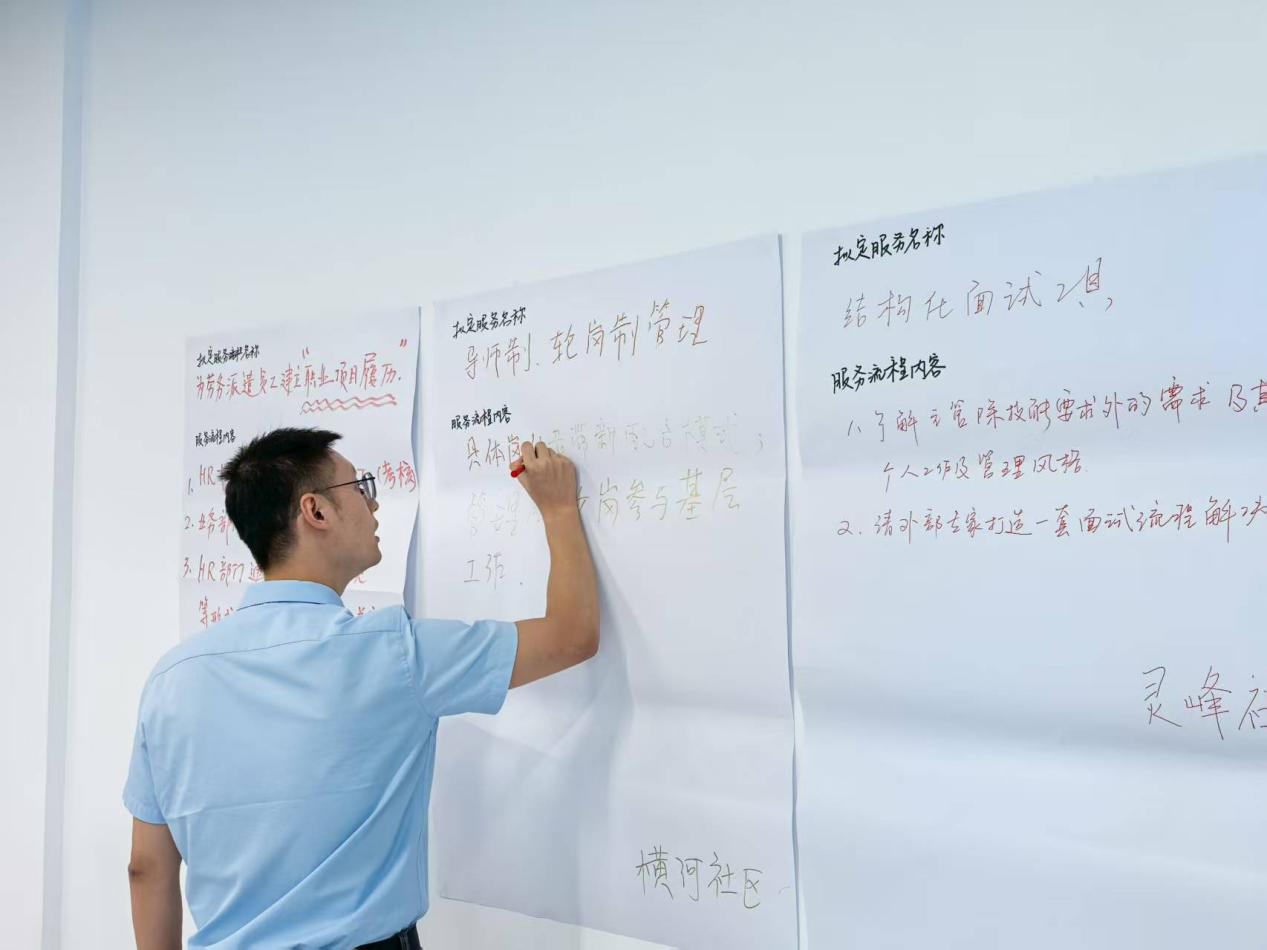 拟定服务名称
为劳务派遣员工建立“职业项目履历”
服务流程内容
1. HR
(考核
2. 业务部
3. HR部门
等形式
拟定服务名称
导师制、轮岗制管理
服务流程内容
具体岗
模式;
管理 岗参与基层
工作.
横河社区
拟定服务名称
结构化面试工具
服务流程内容
1. 了解主管除技能要求外的需求及其
个人工作及管理风格.
2. 请外部专家打造一套面试流程解决
灵峰社